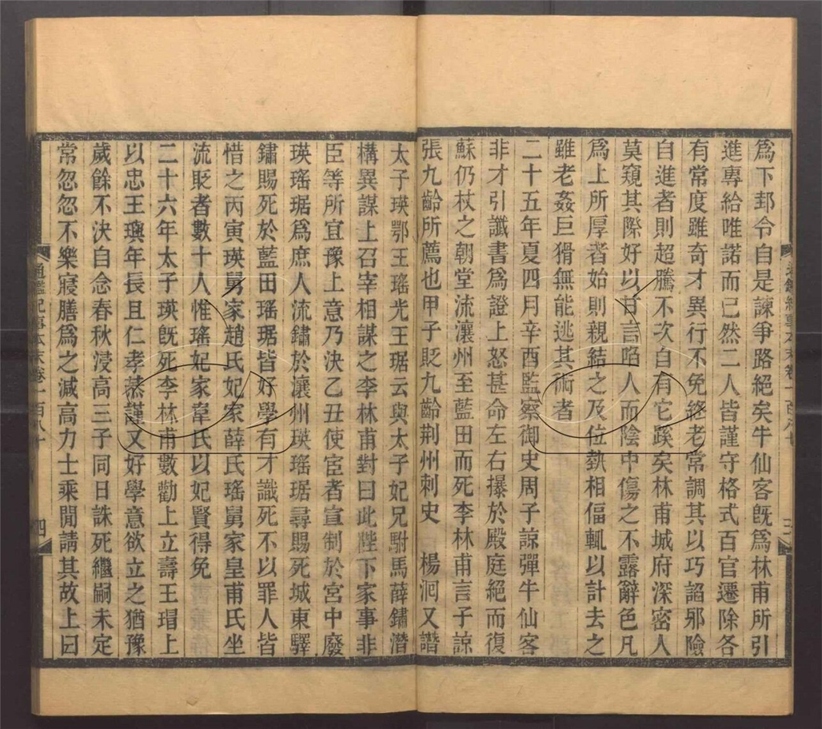 爲下邽令自是諫爭路絕矣牛仙客旣爲林甫所引
進專給唯諾而已然二人皆謹守格式百官遷除各
有常度雖奇才異行不免終老常調其以巧諂邪險
自進者則超騰不次自有它蹊矣林甫城府深密人
莫窺其際好以甘言啗人而陰中傷之不露辭色凡
爲上所厚者始則親結之及位埶相偪輒以計去之
雖老姦巨猾無能逃其術者
二十五年夏四月辛酉監察御史周子諒彈牛仙客
非才引讖書爲證上怒甚命左右㩧於殿庭絕而復
蘇仍杖之朝堂流瀼州至藍田而死李林甫言子諒
張九齡所薦也甲子貶九齡荆州刺史 楊洄又譖
太子瑛鄂王瑤光王琚云與太子妃兄駙馬薛鏽潛
構異謀上召宰相謀之李林甫對曰此陛下家事非
臣等所宜豫上意乃決乙丑使宦者宣制於宮中廢
瑛瑤琚爲庶人流鏽於瀼州瑛瑤琚尋賜死城東驛
鏽賜死於藍田瑤琚皆好學有才識死不以罪人皆
惜之丙寅瑛舅家趙氏妃家薛氏瑤舅家皇甫氏坐
流貶者數十人惟瑤妃家韋氏以妃賢得免
二十六年太子瑛旣死李林甫數勸上立壽王瑁上
以忠王璵年長且仁孝恭謹又好學意欲立之猶豫
歲餘不決自念春秋浸高三子同日誅死繼嗣未定
常忽忽不樂寢膳爲之減高力士乘閒請其故上曰
通鑑紀事本末卷一百八十
四